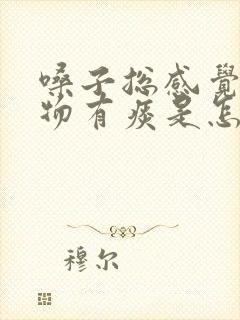 嗓子总感覺
物有痰是怎
穆尔